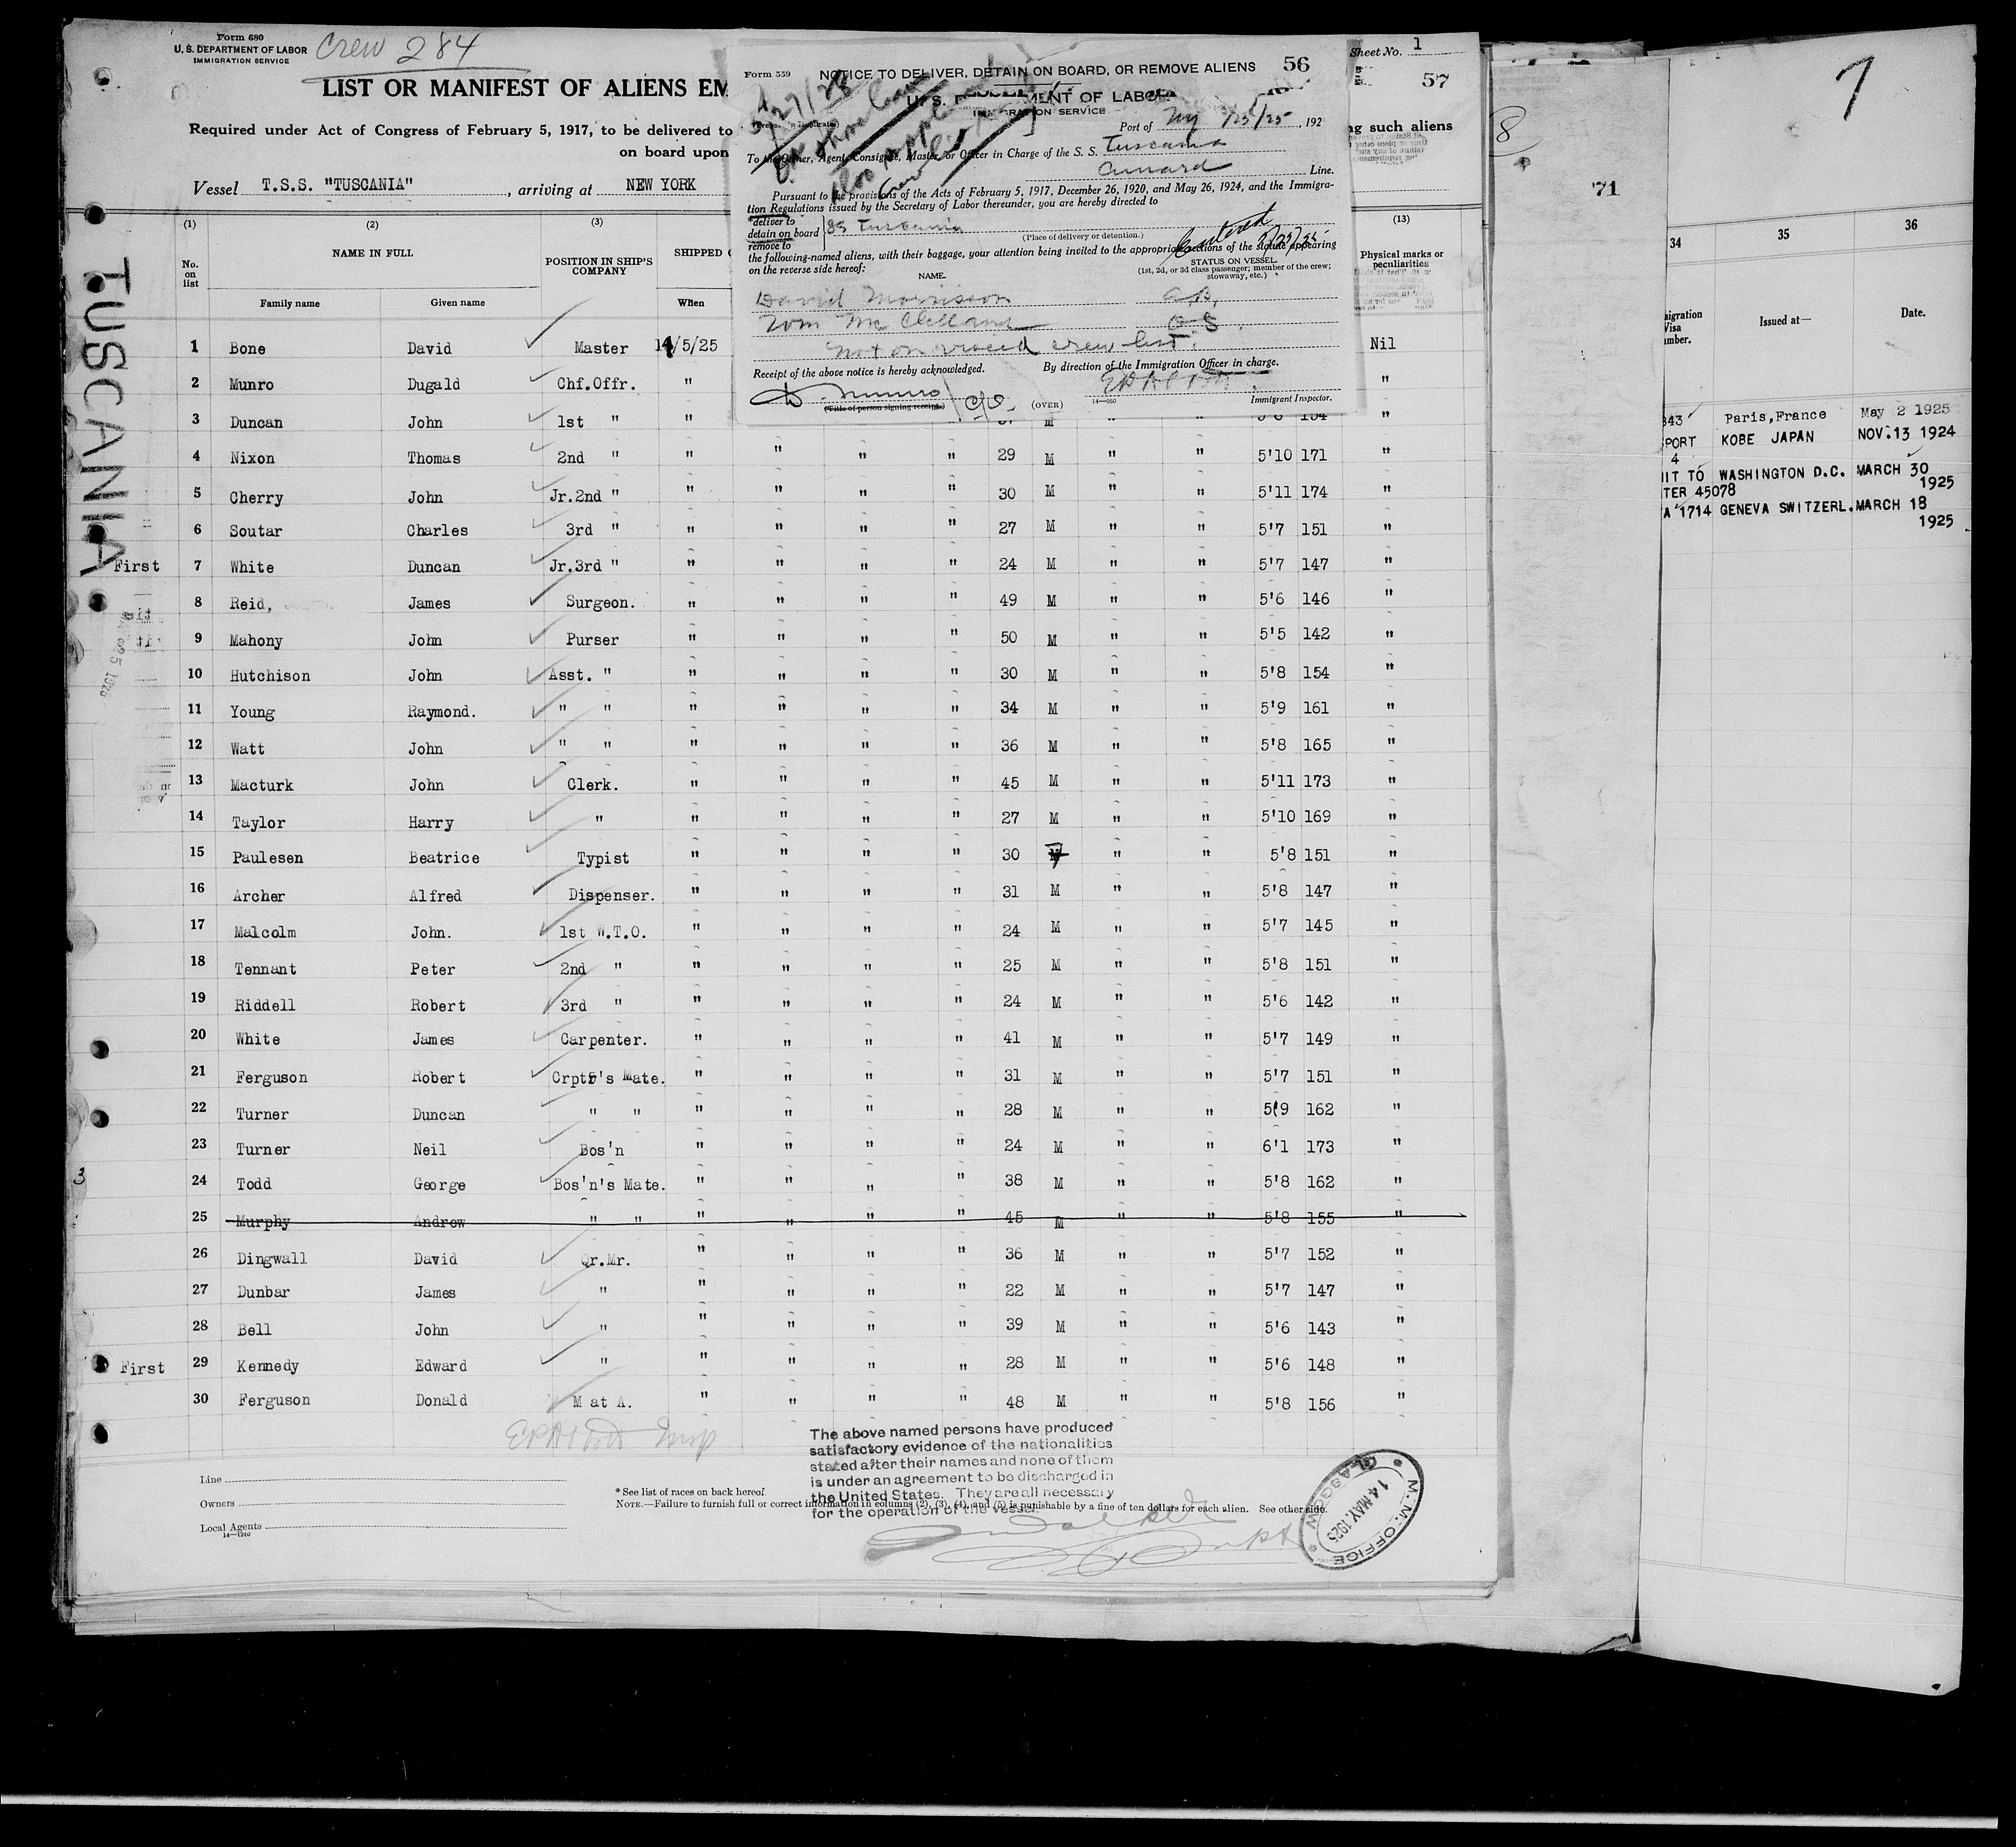 Form 680
U. S. DEPARTMENT OF LABOR
IMMIGRATION SERVICE
Crew 284
LIST OR MANIFEST OF ALIENS EM
Required under Act of Congress of February 5, 1917, to be delivered to
on board upon
Vessel T.S.S. "TUSCANIA", arriving at NEW YORK
Sheet No. 1
57
ng such aliens
TUSCANIA
Form 559
NOTICE TO DELIVER, DETAIN ON BOARD, OR REMOVE ALIENS 56
U. S. MENT OF LABOR
IMMIGRATION SERVICE
5/27/28
Port of NY 5/25/25, 192
To the Owner, Agent, Consignee, Master, or Officer in Charge of the S. S. Tuscania
Cunard Line.
Pursuant to the provisions of the Acts of February 5, 1917, December 26, 1920, and May 26, 1924, and the Immigra-
tion Regulations issued by the Secretary of Labor thereunder, you are hereby directed to
*deliver to
detain on board } SS Tuscania
remove to
(Place of delivery or detention.)
the following-named aliens, with their baggage, your attention being invited to the appropriate sections of the statute appearing
on the reverse side hereof:
NAME.
STATUS ON VESSEL
(1st, 2d, or 3d class passenger; member of the crew; stowaway, etc.)
David Morrisson A.B.
Tom McClelland O S.
not on visaed crew list.
Receipt of the above notice is hereby acknowledged.
By direction of the Immigration Officer in charge.
D. Munro c/o.
(Title of person signing receipt.)
(OVER)
14—950
Immigrant Inspector.
(1) (2) (3) (13)
No. on list
NAME IN FULL
Family name Given name
POSITION IN SHIP'S COMPANY
SHIPPED
When
Physical marks or peculiarities
1 Bone David Master 14/5/25 Nil
2 Munro Dugald Chf.Offr. " "
3 Duncan John 1st " " "
4 Nixon Thomas 2nd " " " " " 29 M " " 5'10 171 "
5 Cherry John Jr.2nd " " " " " 30 M " " 5'11 174 "
6 Soutar Charles 3rd " " " " " 27 M " " 5'7 151 "
First 7 White Duncan Jr.3rd " " " " " 24 M " " 5'7 147 "
8 Reid, James Surgeon. " " " " 49 M " " 5'6 146 "
9 Mahony John Purser " " " " 50 M " " 5'5 142 "
10 Hutchison John Asst. " " " " " 30 M " " 5'8 154 "
11 Young Raymond. " " " " " " 34 M " " 5'9 161 "
12 Watt John " " " " " " 36 M " " 5'8 165 "
13 Macturk John Clerk. " " " " 45 M " " 5'11 173 "
14 Taylor Harry " " " " " 27 M " " 5'10 169 "
15 Paulesen Beatrice Typist " " " " 30 F " " 5'8 151 "
16 Archer Alfred Dispenser. " " " " 31 M " " 5'8 147 "
17 Malcolm John. 1st W.T.O. " " " " 24 M " " 5'7 145 "
18 Tennant Peter 2nd " " " " " 25 M " " 5'8 151 "
19 Riddell Robert 3rd " " " " " 24 M " " 5'6 142 "
20 White James Carpenter. " " " " 41 M " " 5'7 149 "
21 Ferguson Robert Crptr's Mate. " " " " 31 M " " 5'7 151 "
22 Turner Duncan " " " " " " 28 M " " 5'9 162 "
23 Turner Neil Bos'n " " " " 24 M " " 6'1 173 "
24 Todd George Bos'n's Mate. " " " " 38 M " " 5'8 162 "
25 Murphy Andrew " " " " " " 45 M " " 5'8 155 "
26 Dingwall David Qr.Mr. " " " " 36 M " " 5'7 152 "
27 Dunbar James " " " " " 22 M " " 5'7 147 "
28 Bell John " " " " " 39 M " " 5'6 143 "
First 29 Kennedy Edward " " " " " 28 M " " 5'6 148 "
30 Ferguson Donald M at A. " " " " 48 M " " 5'8 156 "
3
The above named persons have produced
satisfactory evidence of the nationalities
stated after their names and none of them
is under an agreement to be discharged in
the United States. They are all necessary
for the operation of the vessel.
Line
Owners
Local Agents
14—1240
* See list of races on back hereof.
NOTE.—Failure to furnish full or correct information in columns (2), (3), (4), and (5) is punishable by a fine of ten dollars for each alien. See other side.
M.M. OFFICE
14 MAY. 1925
GLASGOW
8
71
7
34 35 36
migration
Visa
umber.
Issued at—
Date.
343 Paris,France May 2 1925
PORT KOBE JAPAN NOV.13 1924
4
IT TO WASHINGTON D.C. MARCH 30
TER 45078 1925
A 1714 GENEVA SWITZERL. MARCH 18
1925